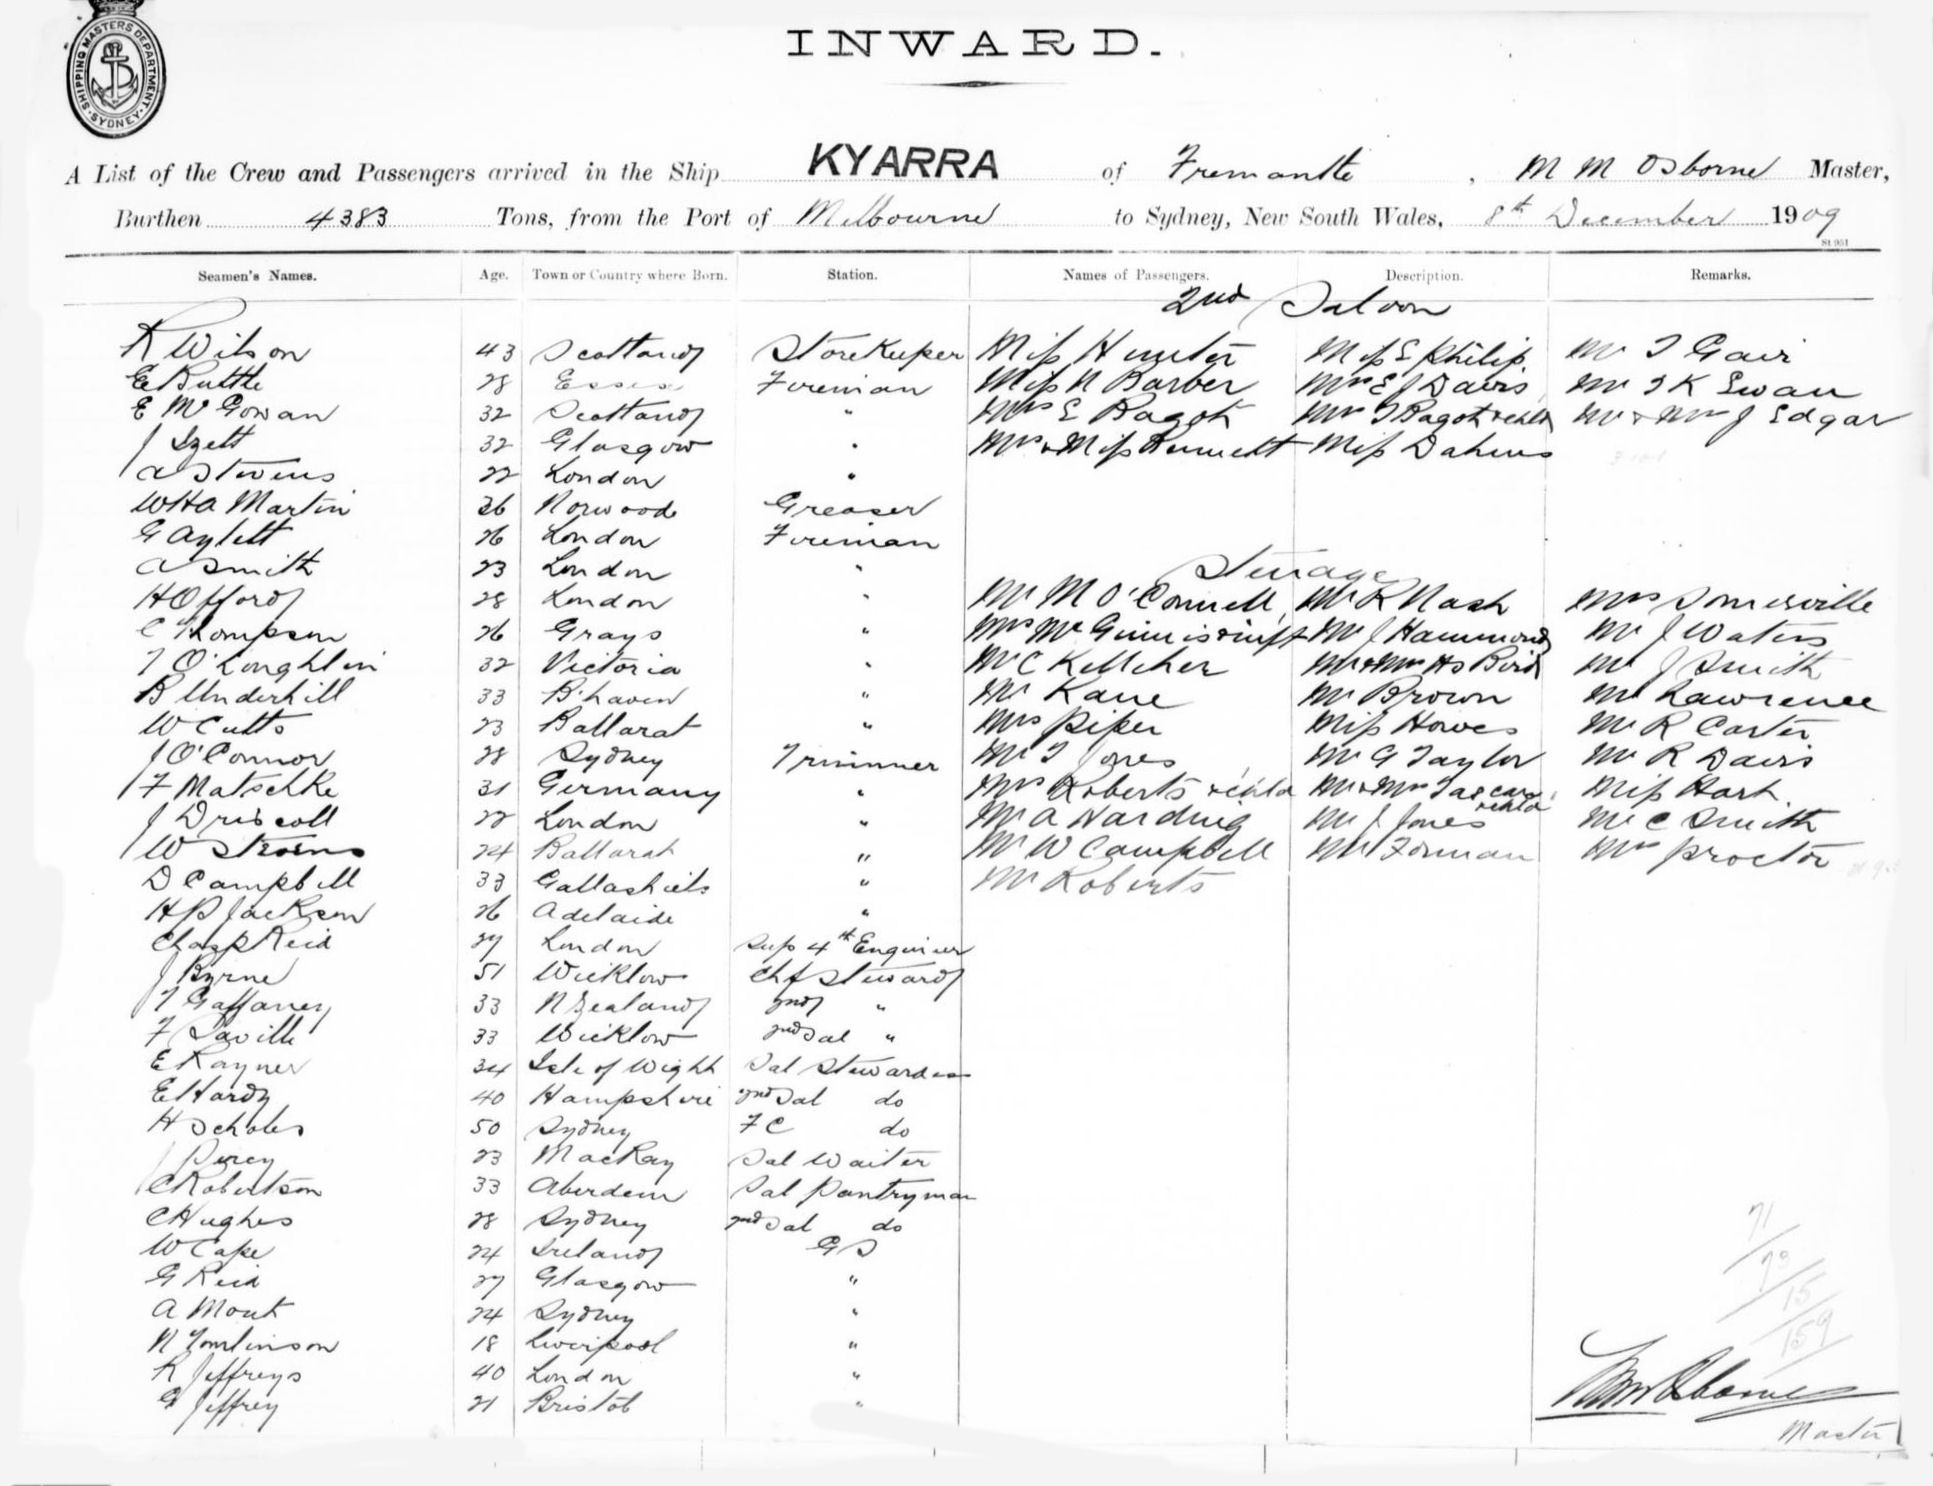 SHIPPING MASTERS DEPARTMENT
SYDNEY
INWARD.
A List of the Crew and Passengers arrived in the Ship KYARRA of Fremantle, M M Osborne Master,
Burthen 4383 Tons, from the Port of Melbourne to Sydney, New South Wales, 8th December 1909
St 951
Seamen's Names. Age. Town or Country where Born. Station. Names of Passengers. Description. Remarks.
2nd Saloon
R Wilson 43 Scotland Storekeeper Miss Hunter Miss E Philip Mr T Gair
E Buttle 28 Essex Fireman Miss N Barber Mrs E J Davis Mr T K Swan
E McGowan 32 Scotland " Mrs E Bagot Mrs T Bagot & child Mr & Mrs J Edgar
J Izett 32 Glasgow " Mrs & Miss Miss
A Stevens 22 London "
WHA Martin 36 Norwood Greaser
G Aylett 26 London Fireman
A Smith 23 London "
Steerage
H Offord 28 London " Mr M O'Connell, Mr R Nash Mrs Somerville
C Thompson 26 Grays " Mrs McGinnis & inft Mr J Hammond Mr J Waters
T O'Loughlin 32 Victoria " Mr C Kelleher Mr & Mrs Hs Bird Mr J Smith
B Underhill 33 B'haven " Mr Kane Mr Brown Mr Lawrence
W Cutts 23 Ballarat " Mrs Piper Miss Howes Mr R Carter
J O'Connor 28 Sydney Trimmer Mr T Jones Mr G Taylor Mr R Davis
F Matschke 31 Germany " Mrs Roberts & child Mr & Mrs & child Miss Hart
J Driscoll 22 London " Mr A Harding Mr J Jones Mr C Smith
W Stevens 24 Ballarat " Mr W Campbell Mr Forman Mrs Proctor
D Campbell 33 Gallashiels " Mr Roberts
H P Jackson 26 Adelaide "
Chas P Reid 27 London Sup 4th Engineer
J Byrne 51 Wicklow Chf Steward
T Gaffaney 33 N Zealand 2nd "
F Saville 33 Wicklow 2nd Sal "
E Rayner 34 Isle of Wight Sal Stewardess
E Hardy 40 Hampshire 2nd Sal do
H Scholes 50 Sydney F C do
J Percy 23 MacKay Sal Waiter
C Robertson 33 Aberdeen Sal Pantryman
C Hughes 28 Sydney 2nd Sal do
W Cape 24 Ireland G S
G Reid 27 Glasgow "
A Mout 24 Sydney "
N Tomlinson 18 Liverpool "
R Jeffreys 40 London "
G Jeffrey 21 Bristol "
71
73
15
159
M M Osborne
Master